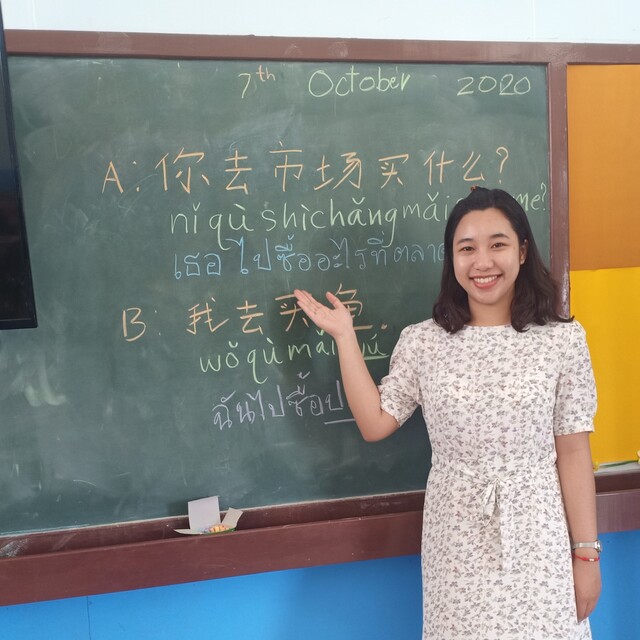 7th October 2020
A: 你去市场买什么?
nǐ qù shìchǎng mǎi me?
เธอ ไปซื้ออะไรที่ตลาด
B: 我去买鱼.
wǒ qù mǎi
ฉันไปซื้อป